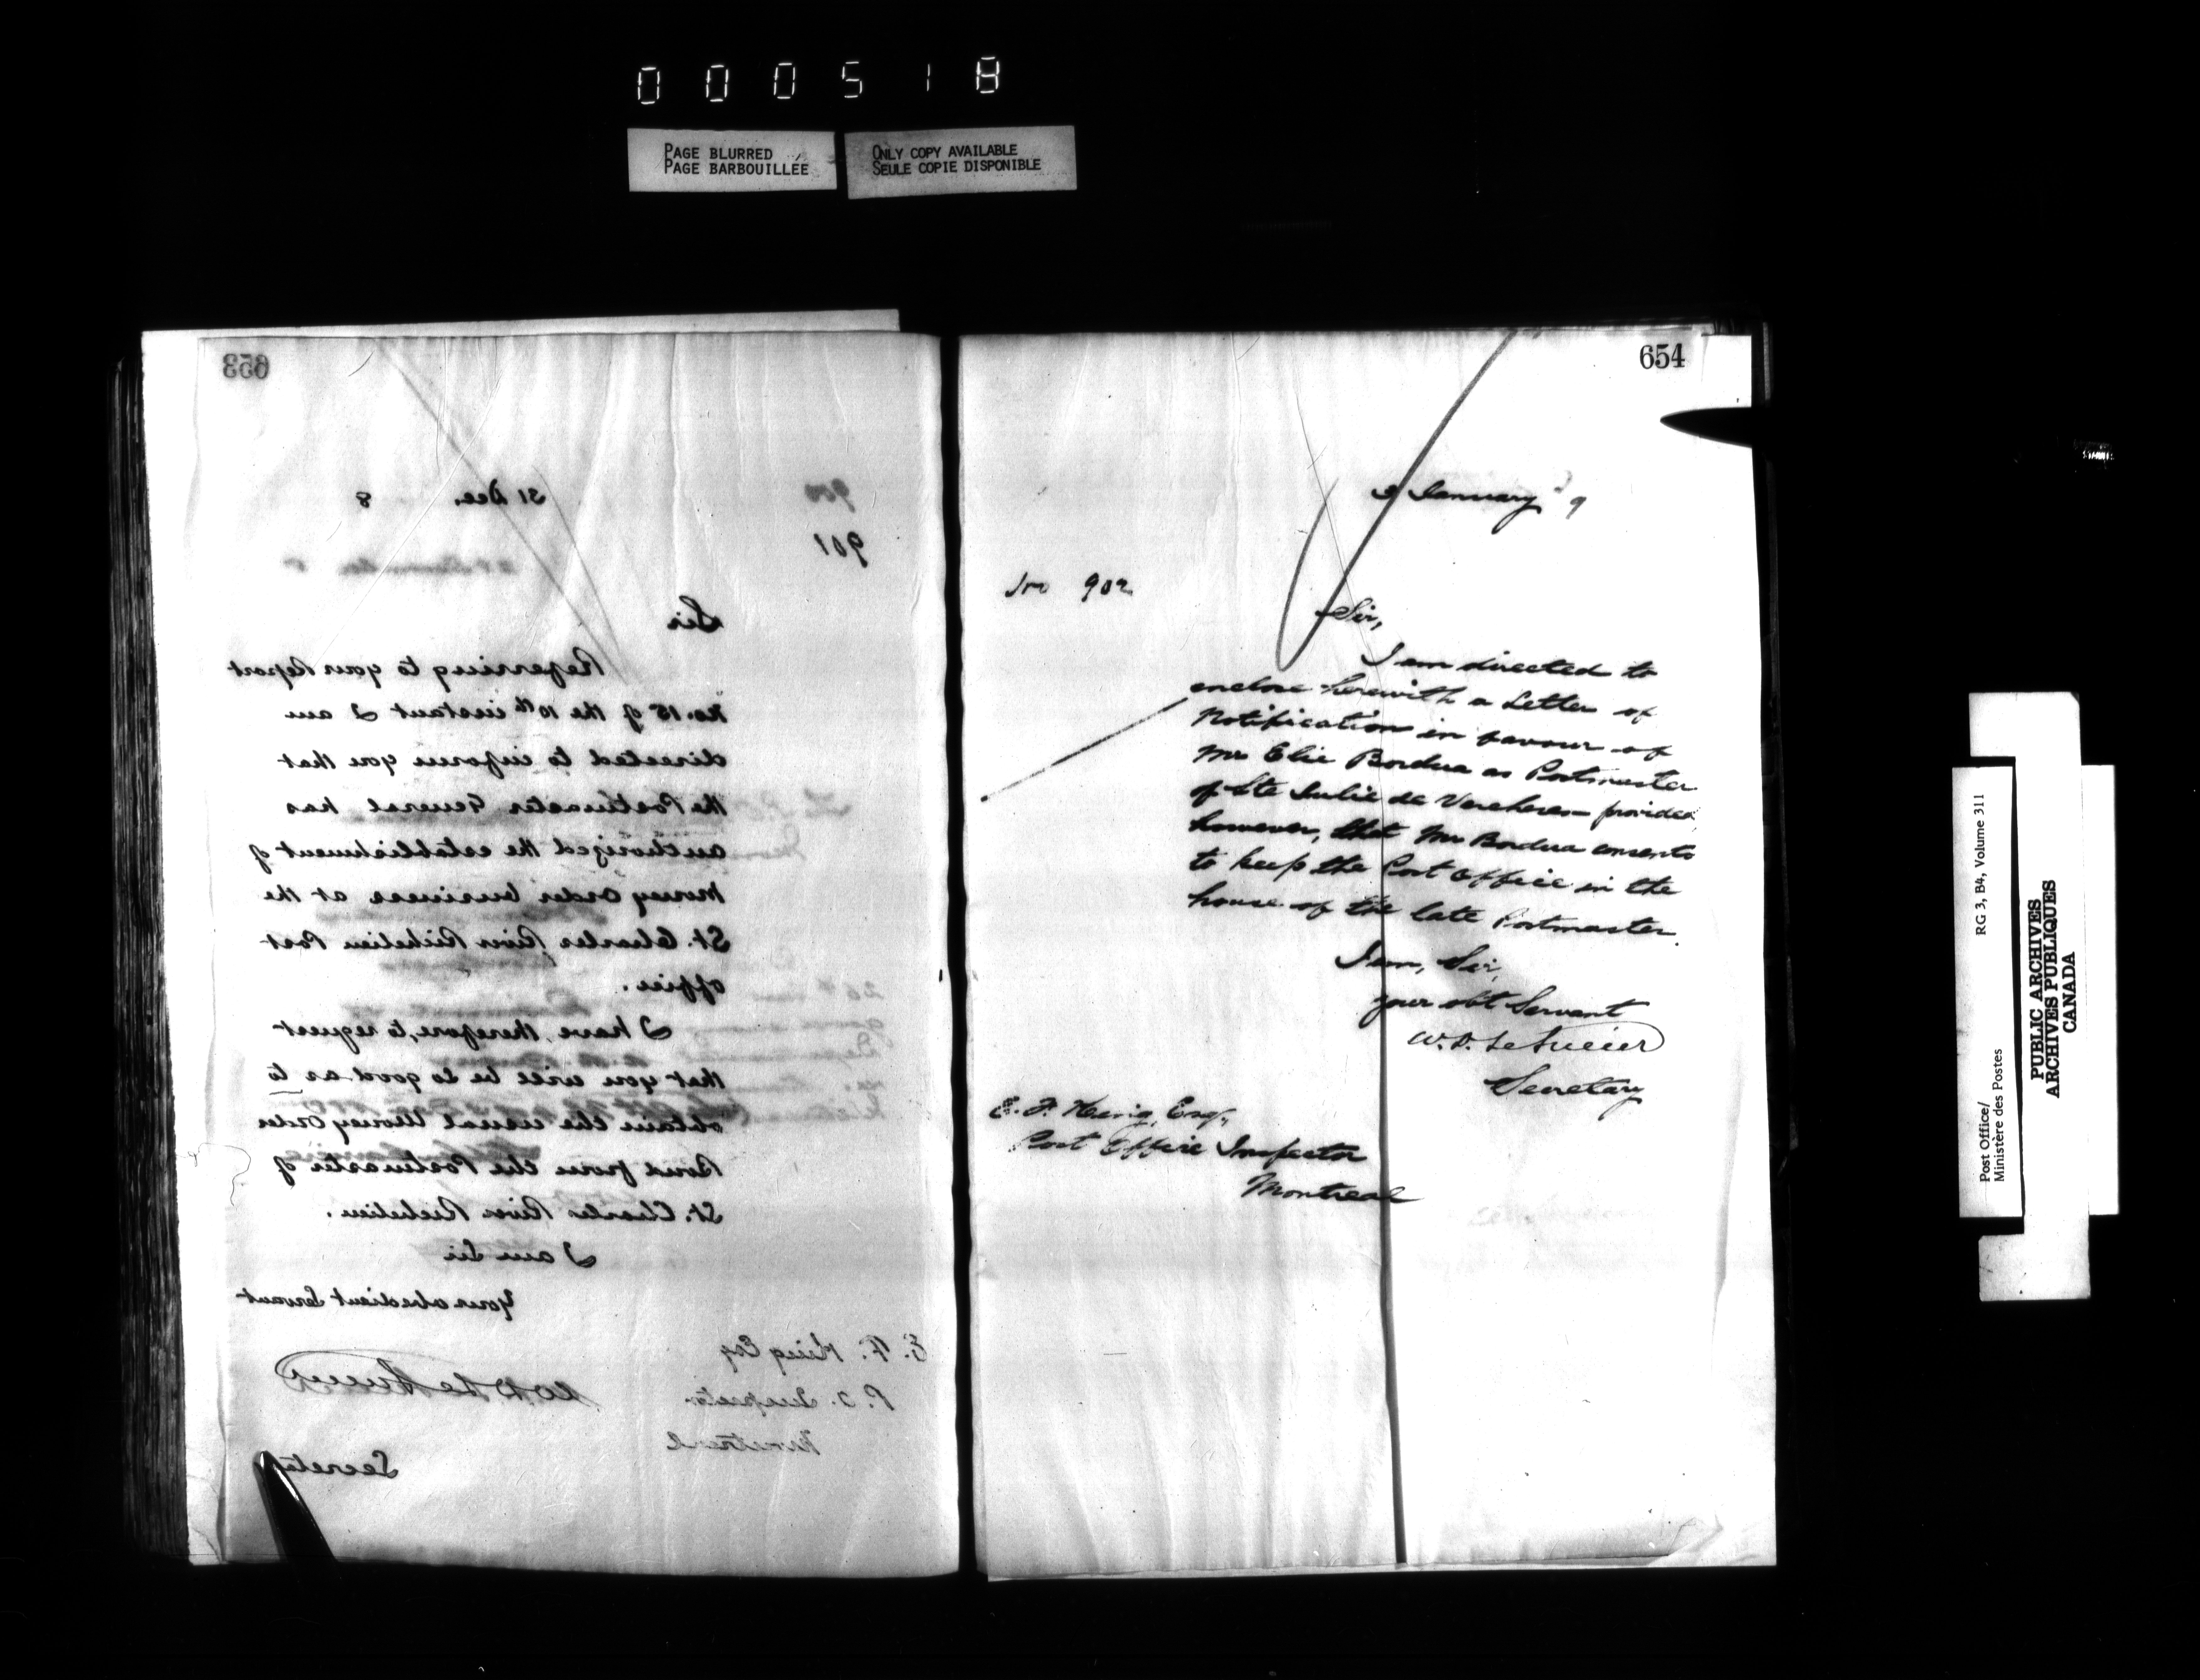 000518
PAGE BLURRED
PAGE BARBOUILLÉE
ONLY COPY AVAILABLE
SEULE COPIE DISPONIBLE
653
31 Dec. 8
900
901
Sir
Referring to your Report
No. 15 of the 10th instant I am
directed to inform you that
the Postmaster General has
authorized the establishment of
Money Order business at the
St. Charles River Richelieu Post
office.
I have, therefore, to request
that you will be so good as to
obtain the usual Money Order
Bond from the Postmaster of
St. Charles River Richelieu.
I am Sir
Your obedient Servant
W D LeSueur
Secretary
E. F. King Esq
P. O. Inspector
Montreal
654
January 9
No 902
Sir,
I am directed to
enclose herewith a Letter of
Notification in favour of
Mr Elie Bordua as Postmaster
of Ste Julie de Vercheres provided
however, that Mr Bordua consents
to keep the Post Office in the
house of the late Postmaster.
I am, Sir,
your obt Servant
W. D. LeSueur
Secretary
E. F. King, Esq.,
Post Office Inspector
Montreal
Post Office/
Ministère des Postes
RG 3, B4, Volume 311
PUBLIC ARCHIVES
ARCHIVES PUBLIQUES
CANADA